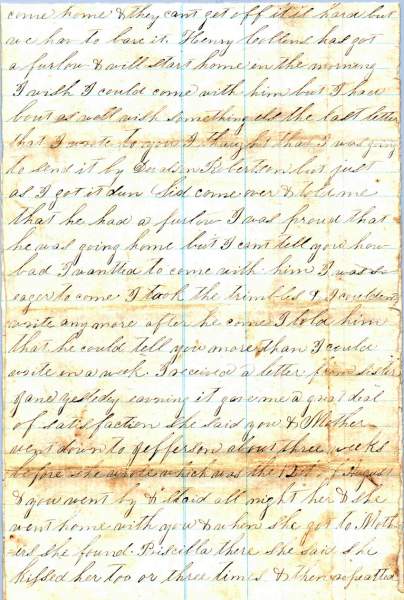 come home & they cant get off it is hard but
we hav to bare it. Henry Collens has got
a furlow & will start home on the morning
I wish I could come with him but I had
bout as well wish something els the last letter
that I wrote to you I thought that I was going
to send it by Robertson but just
as I got it dun Sid come over & told me
that he had a furlow I was proud that
he was going home but I cant tell you how
bad I wanted to come with him I was so
eager to come I took the trimbles & I couldent
write any more after he come I told him
that he could tell you more than I could
write in a week I received a letter from sister
Jane yesterdy evning it gave me a great deal
of satisfaction she said you & Mother
went down to Jefferson about three weeks
before she wrote which was the 12th of August
& you went by & staid all night her & she
went home with you & when she got to Moth
ers she found Priscilla there she said she
kissed her too or three times & then